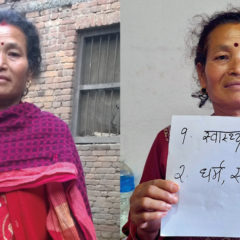 १. स्वास्थ्
२. धर्म,